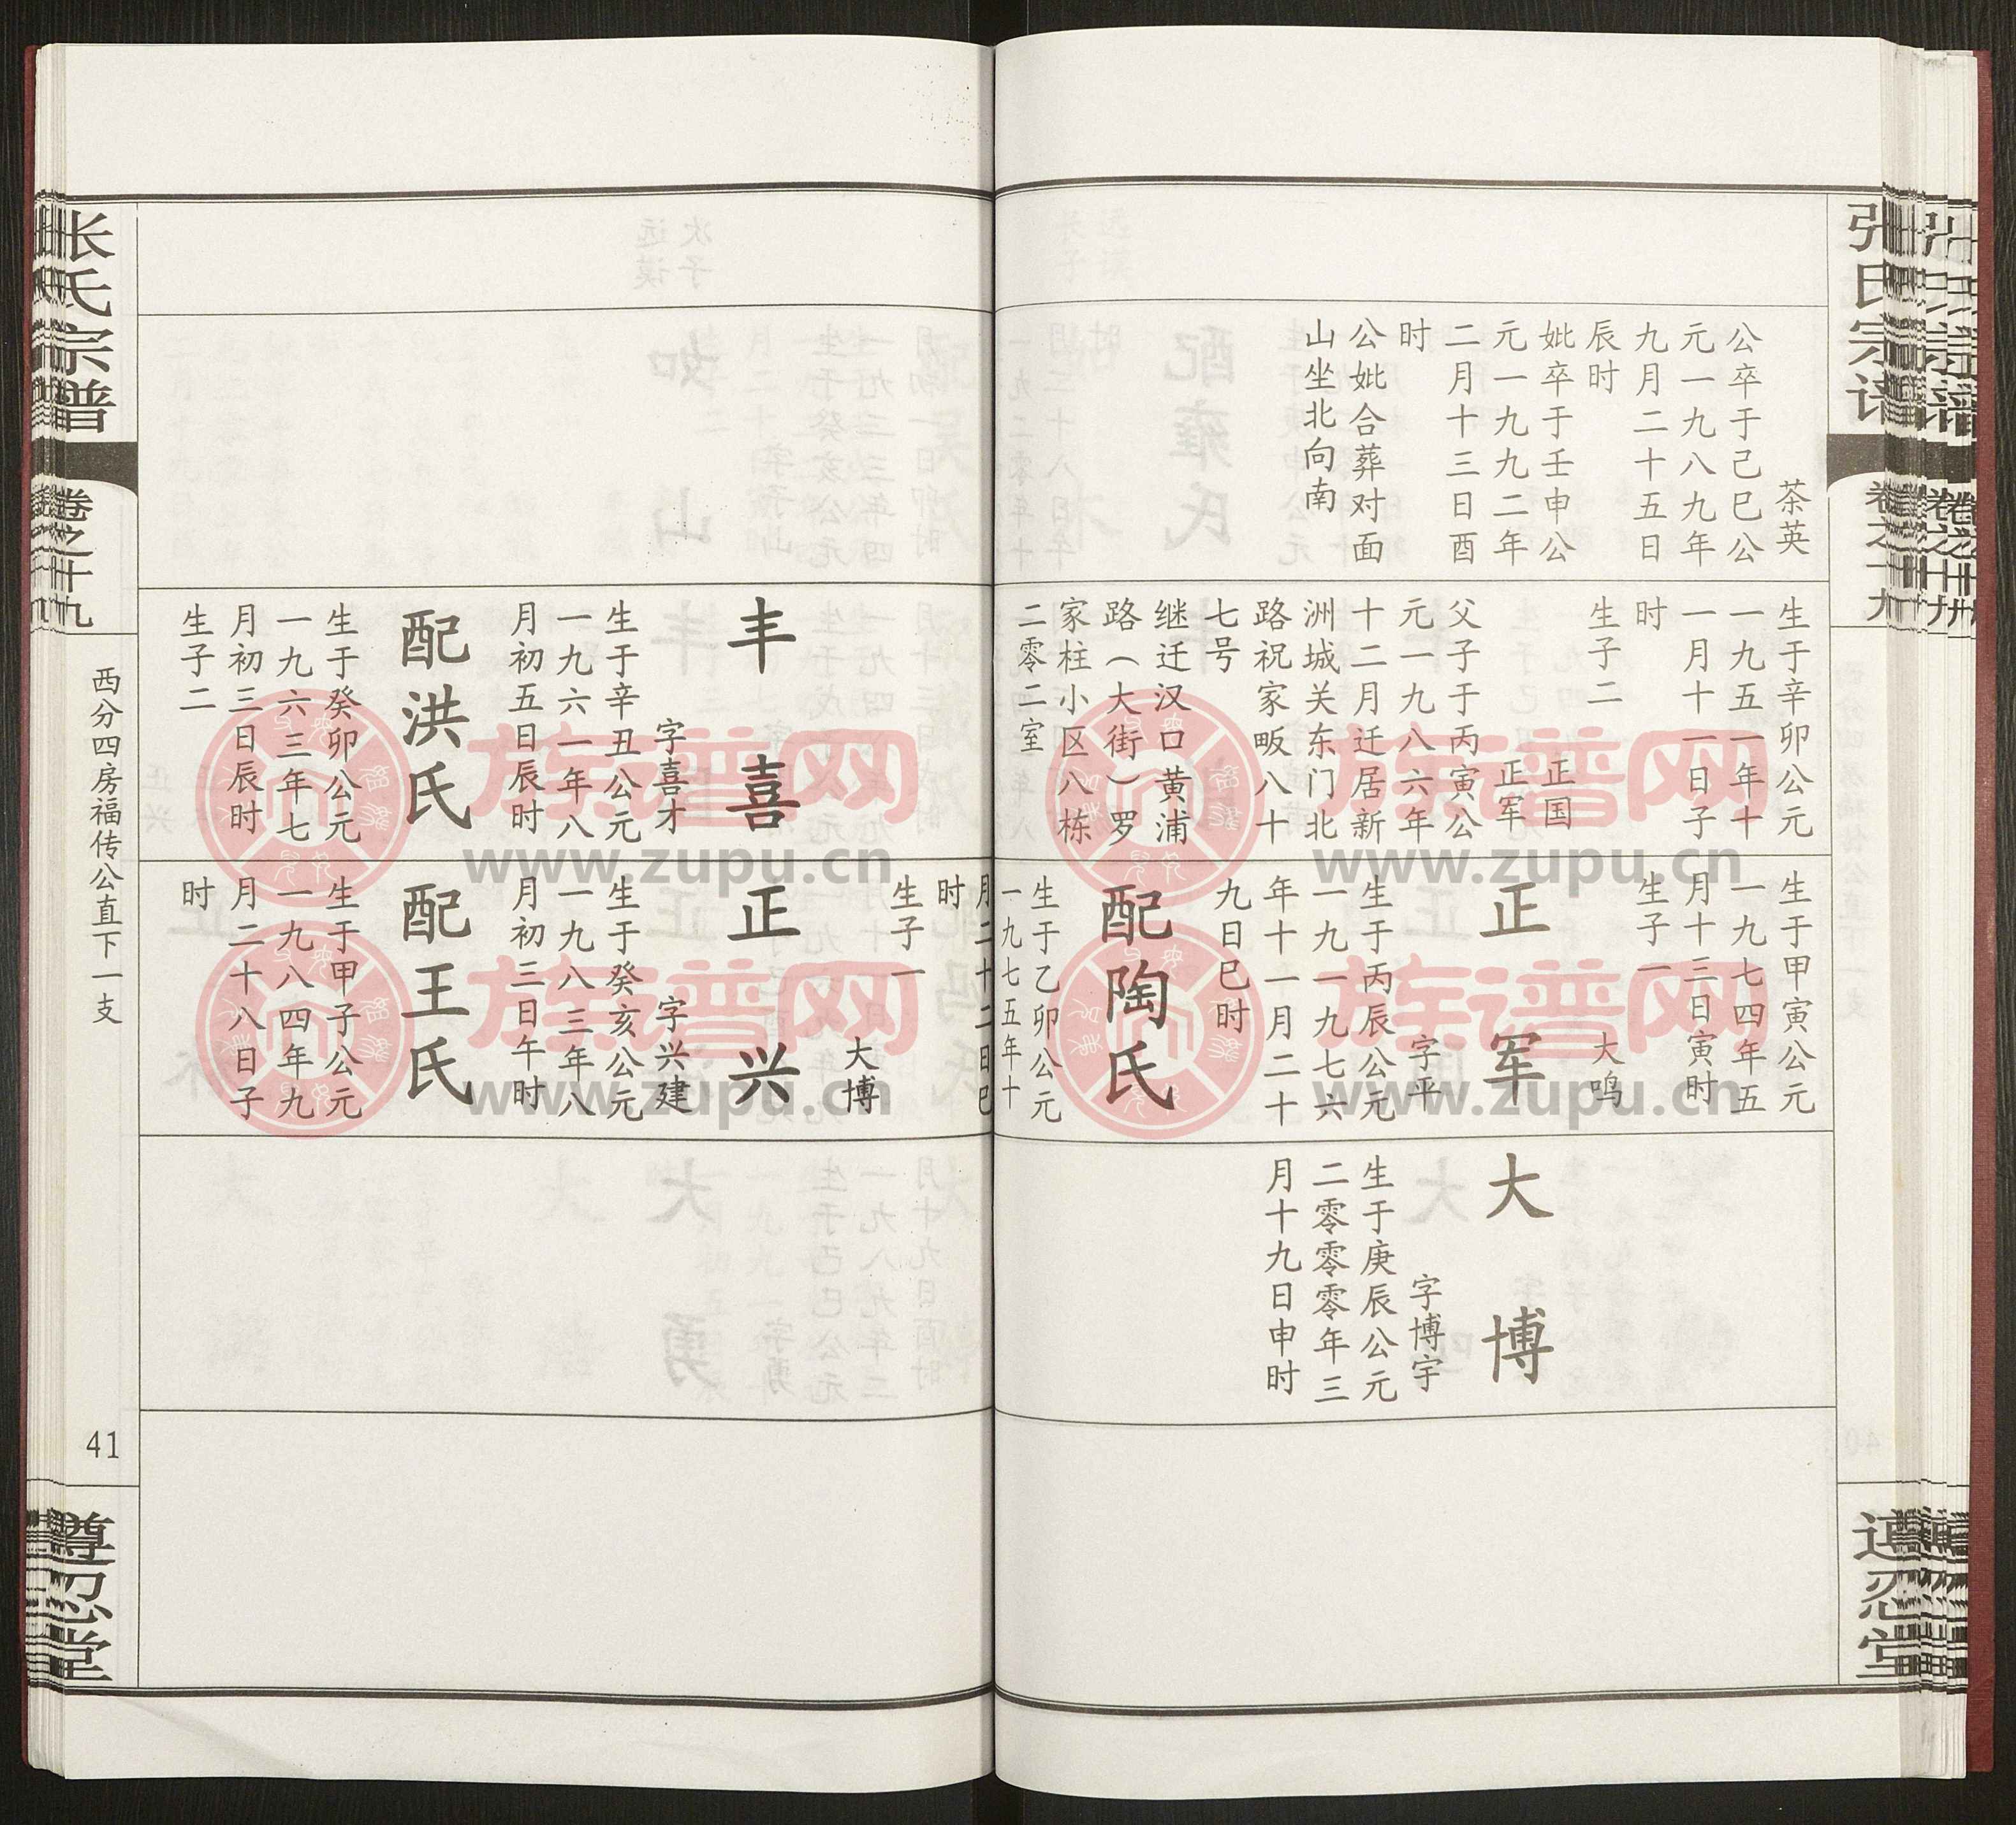 张氏宗谱
卷之十九
荼英
公卒于己巳公
元一九八九年
九月二十五日
辰时
妣卒于壬申公
元一九九二年
二月十三日酉
时
公妣合葬对面
山坐北向南
生于辛卯公元
一九五一年十
一月十一日子
时
生子二
正国
正军
父子于丙寅公
元一九八六年
十二月迁居新
洲城关东门北
路祝家畈八十
七号
继迁汉口黄浦
路（大街）罗
家柱小区八栋
二零二室
生于甲寅公元
一九七四年五
月十三日寅时
生子一
大鸣
正军
字平
生于丙辰公元
一九一九七六
年十一月二十
九日巳时
配陶氏
生于乙卯公元
一九七五年十
月二十二日巳
时
生子一
大博
大博
字博宇
生于庚辰公元
二零零零年三
月十九日申时
遵忍堂
丰喜
字喜才
生于辛丑公元
一九六一年八
月初五日辰时
配洪氏
生于癸卯公元
一九六三年七
月初三日辰时
生子二
正兴
字兴建
生于癸亥公元
一九八三年八
月初三日午时
配王氏
生于甲子公元
一九八四年九
月二十八日子
时
张氏宗谱
卷之十九
西分四房福传公直下一支
41
遵忍堂
族谱网
www.zupu.cn
族谱网
www.zupu.cn
族谱网
www.zupu.cn
族谱网
www.zupu.cn